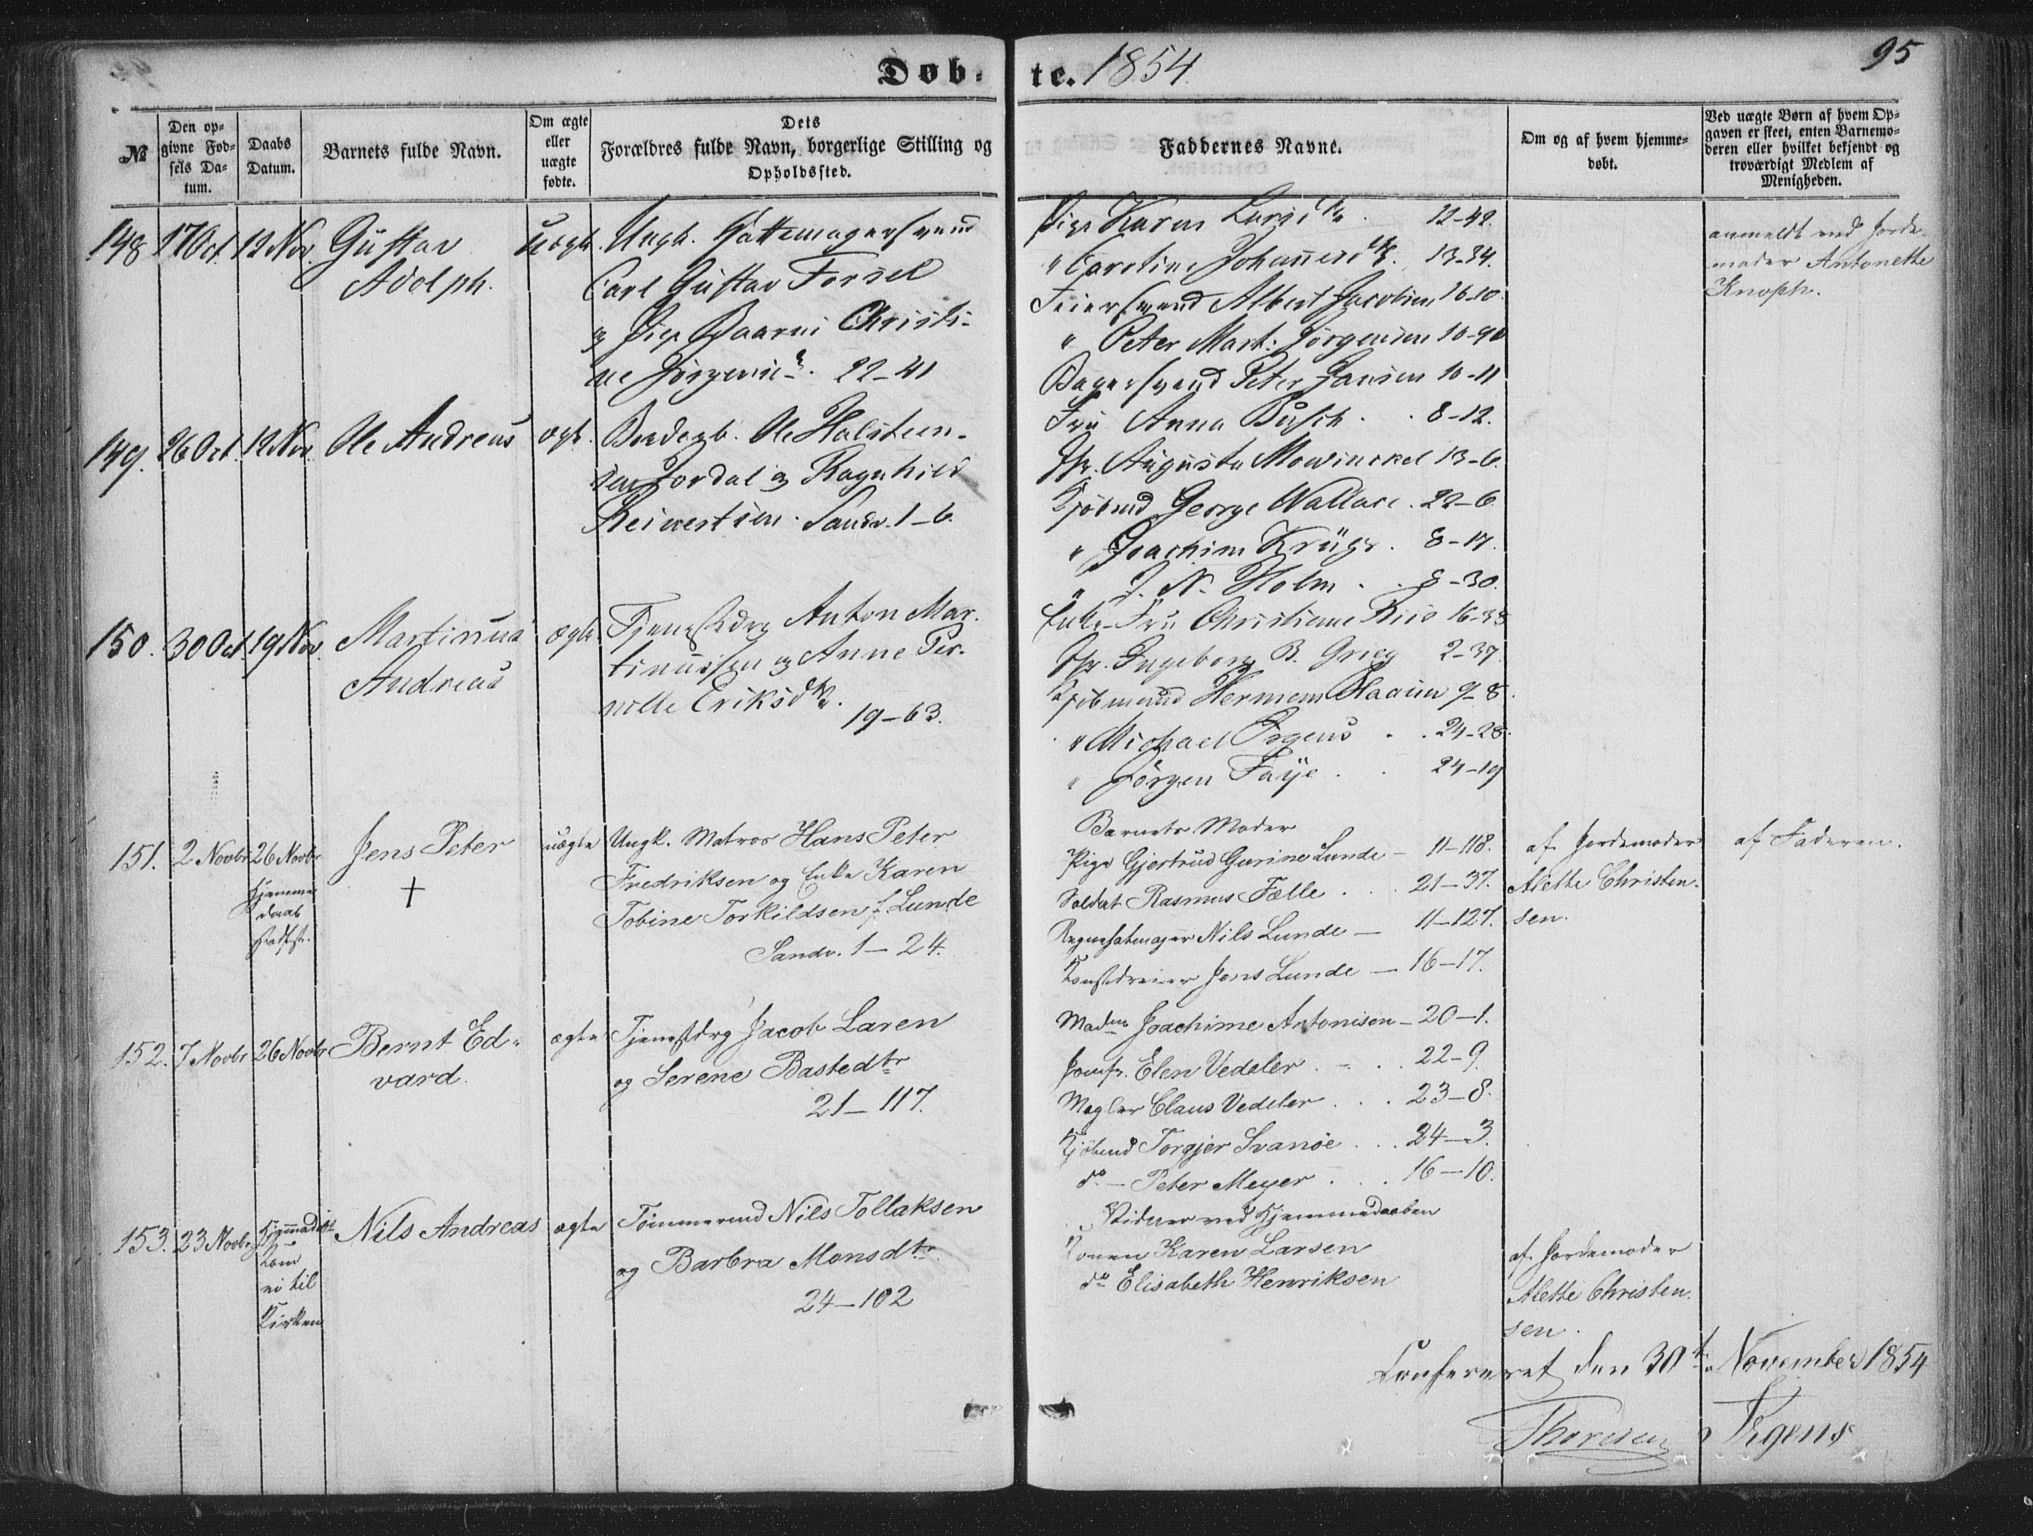 Døbte. 1854. 95
№
Den opgivne Fødsels Datum.
Daabs Datum.
Barnets fulde Navn.
Om ægte eller uægte fødte.
Dets Forældres fulde Navn, borgerlige Stilling og Opholdssted.
Faddernes Navne.
Om og af hvem hjemmedøbt.
Ved uægte Børn af hvem Opgaven er skeet, enten Barnemoderen eller hvilket bekjendt og troværdigt Medlem af Menigheden.
148 17 Oct. 12 Nov. Gustav
Adolph.
uægt.
Ungk. Hattemagersvend
Carl Gustav Forsel
og Pige Baarni Christi-
ne Jørgensd. 22-41
Pige Karen Larsd. 22-42.
" Carotine Johannesd. 13-34.
Feiersvend Albert Jacobsen 16-10.
" Peter Mart: Jørgensen 10-90
Bagersvend Peter Jansen 10-11
anmeldt ved Jorde-
moder Antonette
Knoph.
149. 26 Oct. 12 Nov. Ole Andreus
ægt.
Ole Halsteen-
sen Jordal og Ragnhild
Reinertsen. Sandv. 1-6.
Fru Anna Busch . . 8-12.
Jfr. Augusta Mowinckel 13-6.
Kjøbmd George Wallace . 22-6
" Joachim Krüger . 8-17.
" J. N. Holm . . 8-30.
150. 30 Oct. 19 Nov. Martinus
Andreas
ægte
Tjenestdrg Anton Mar-
tinussen og Anne Per-
nille Eriksdtr.
19-63.
Enke-Fru Christiane Riis 16-38
Jfr. Ingeborg B. Grieg 2-37.
Kjøbmand Hermann Haasen 9-8.
" Michael Irgens . . 24-28.
" Jørgen Faye . . 24-19
151. 2 Novbr 26 Novbr Jens Peter
+
Hjemme
daab
stadfst.
uægte
Ungk. Matros Hans Peter
Fredriksen og Enke Karen
Tobine Torkildsen f. Lunde
Sandv. 1-24.
Barnets Moder
Pige Gjertrud Gurine Lunde - 11-118.
Soldat Rasmus Fælle . . . 21-37.
Nils Lunde - 11-127.
Kunstdreier Jens Lunde - 16-17.
af Jordemoder
Alette Christen-
sen.
af Faderen.
152. 7 Novbr 26 Novbr Bernt Ed-
vard.
ægte
Tjenestdrg Jacob Laren
og Serene Bastedtr
21-117.
Madm Joachime Antonisen - 20-1.
Jomfr. Elen Vedeler . - . . 22-9.
Mægler Claus Vedeler . . . 23-8.
Kjøbmd Torgjer Svanøe . . . 24-3.
do - Peter Meyer . . . 16-10.
153. 23 Novbr Hjemmedøbt
Kom
ei til
Kirken
Nils Andreas
ægte
Tømmermd Nils Tollaksen
og Barbra Monsdtr.
24-102
Vidner ved Hjemmedaaben
Konen Karen Larsen
do Elisabeth Henriksen
af Jordemoder
Alette Christen-
sen.
Confereret den 30te November 1854
Thoresen Irgens